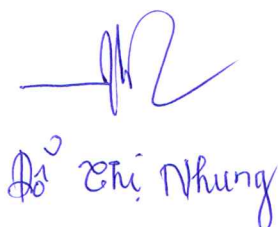 Đỗ Thị Nhung